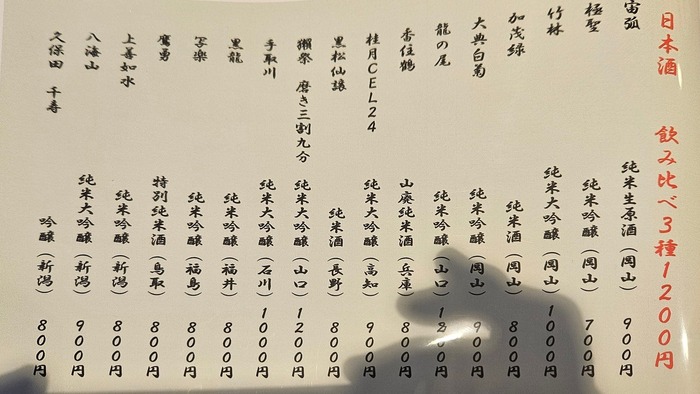 日本酒 飲み比べ3種1200円
宙弧 純米生原酒(岡山)900円
極聖 純米吟醸(岡山)700円
竹林 純米大吟醸(岡山)1000円
加茂緑 純米酒(岡山)800円
大典白菊 純米吟醸(岡山)900円
龍の尾 純米吟醸(山口)
香住鶴 山廃純米酒(兵庫)800円
桂月CEL24 純米大吟醸(高知)900円
黒松仙譲 純米酒(長野)800円
獺祭 磨き三割九分 純米大吟醸(山口)1200円
手取川 純米大吟醸(石川)1000円
黒龍 純米吟醸(福井)800円
写楽 純米吟醸(福島)800円
鷹勇 特別純米酒(鳥取)800円
上善如水 純米吟醸(新潟)800円
八海山 純米大吟醸(新潟)900円
久保田 千寿 吟醸(新潟)800円